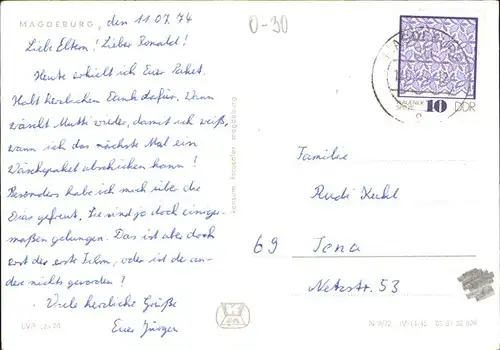 MAGDEBURG, den 11.07.74
Liebe Eltern! Lieber Ronald!
Heute erhielt ich Euer Paket.
Habt herzlichen Dank dafür. Wann
wäscht Mutti wieder, damit ich weiß,
wann ich das nächste Mal ein
Wäschepaket abschicken kann!
Besonders habe ich mich über die
Dias gefreut. Sie sind ja doch einiger-
maßen gelungen. Das ist aber doch
erst der erste Film, oder ist der an-
dere nichts geworden?
Viele herzliche Grüße
Euer Jürgen
0-30
konsum fotoatelier magdeburg
PLAUENER SPITZE 10 DDR
Familie
Rudi Kuhl
69 Jena
Netzstr. 53